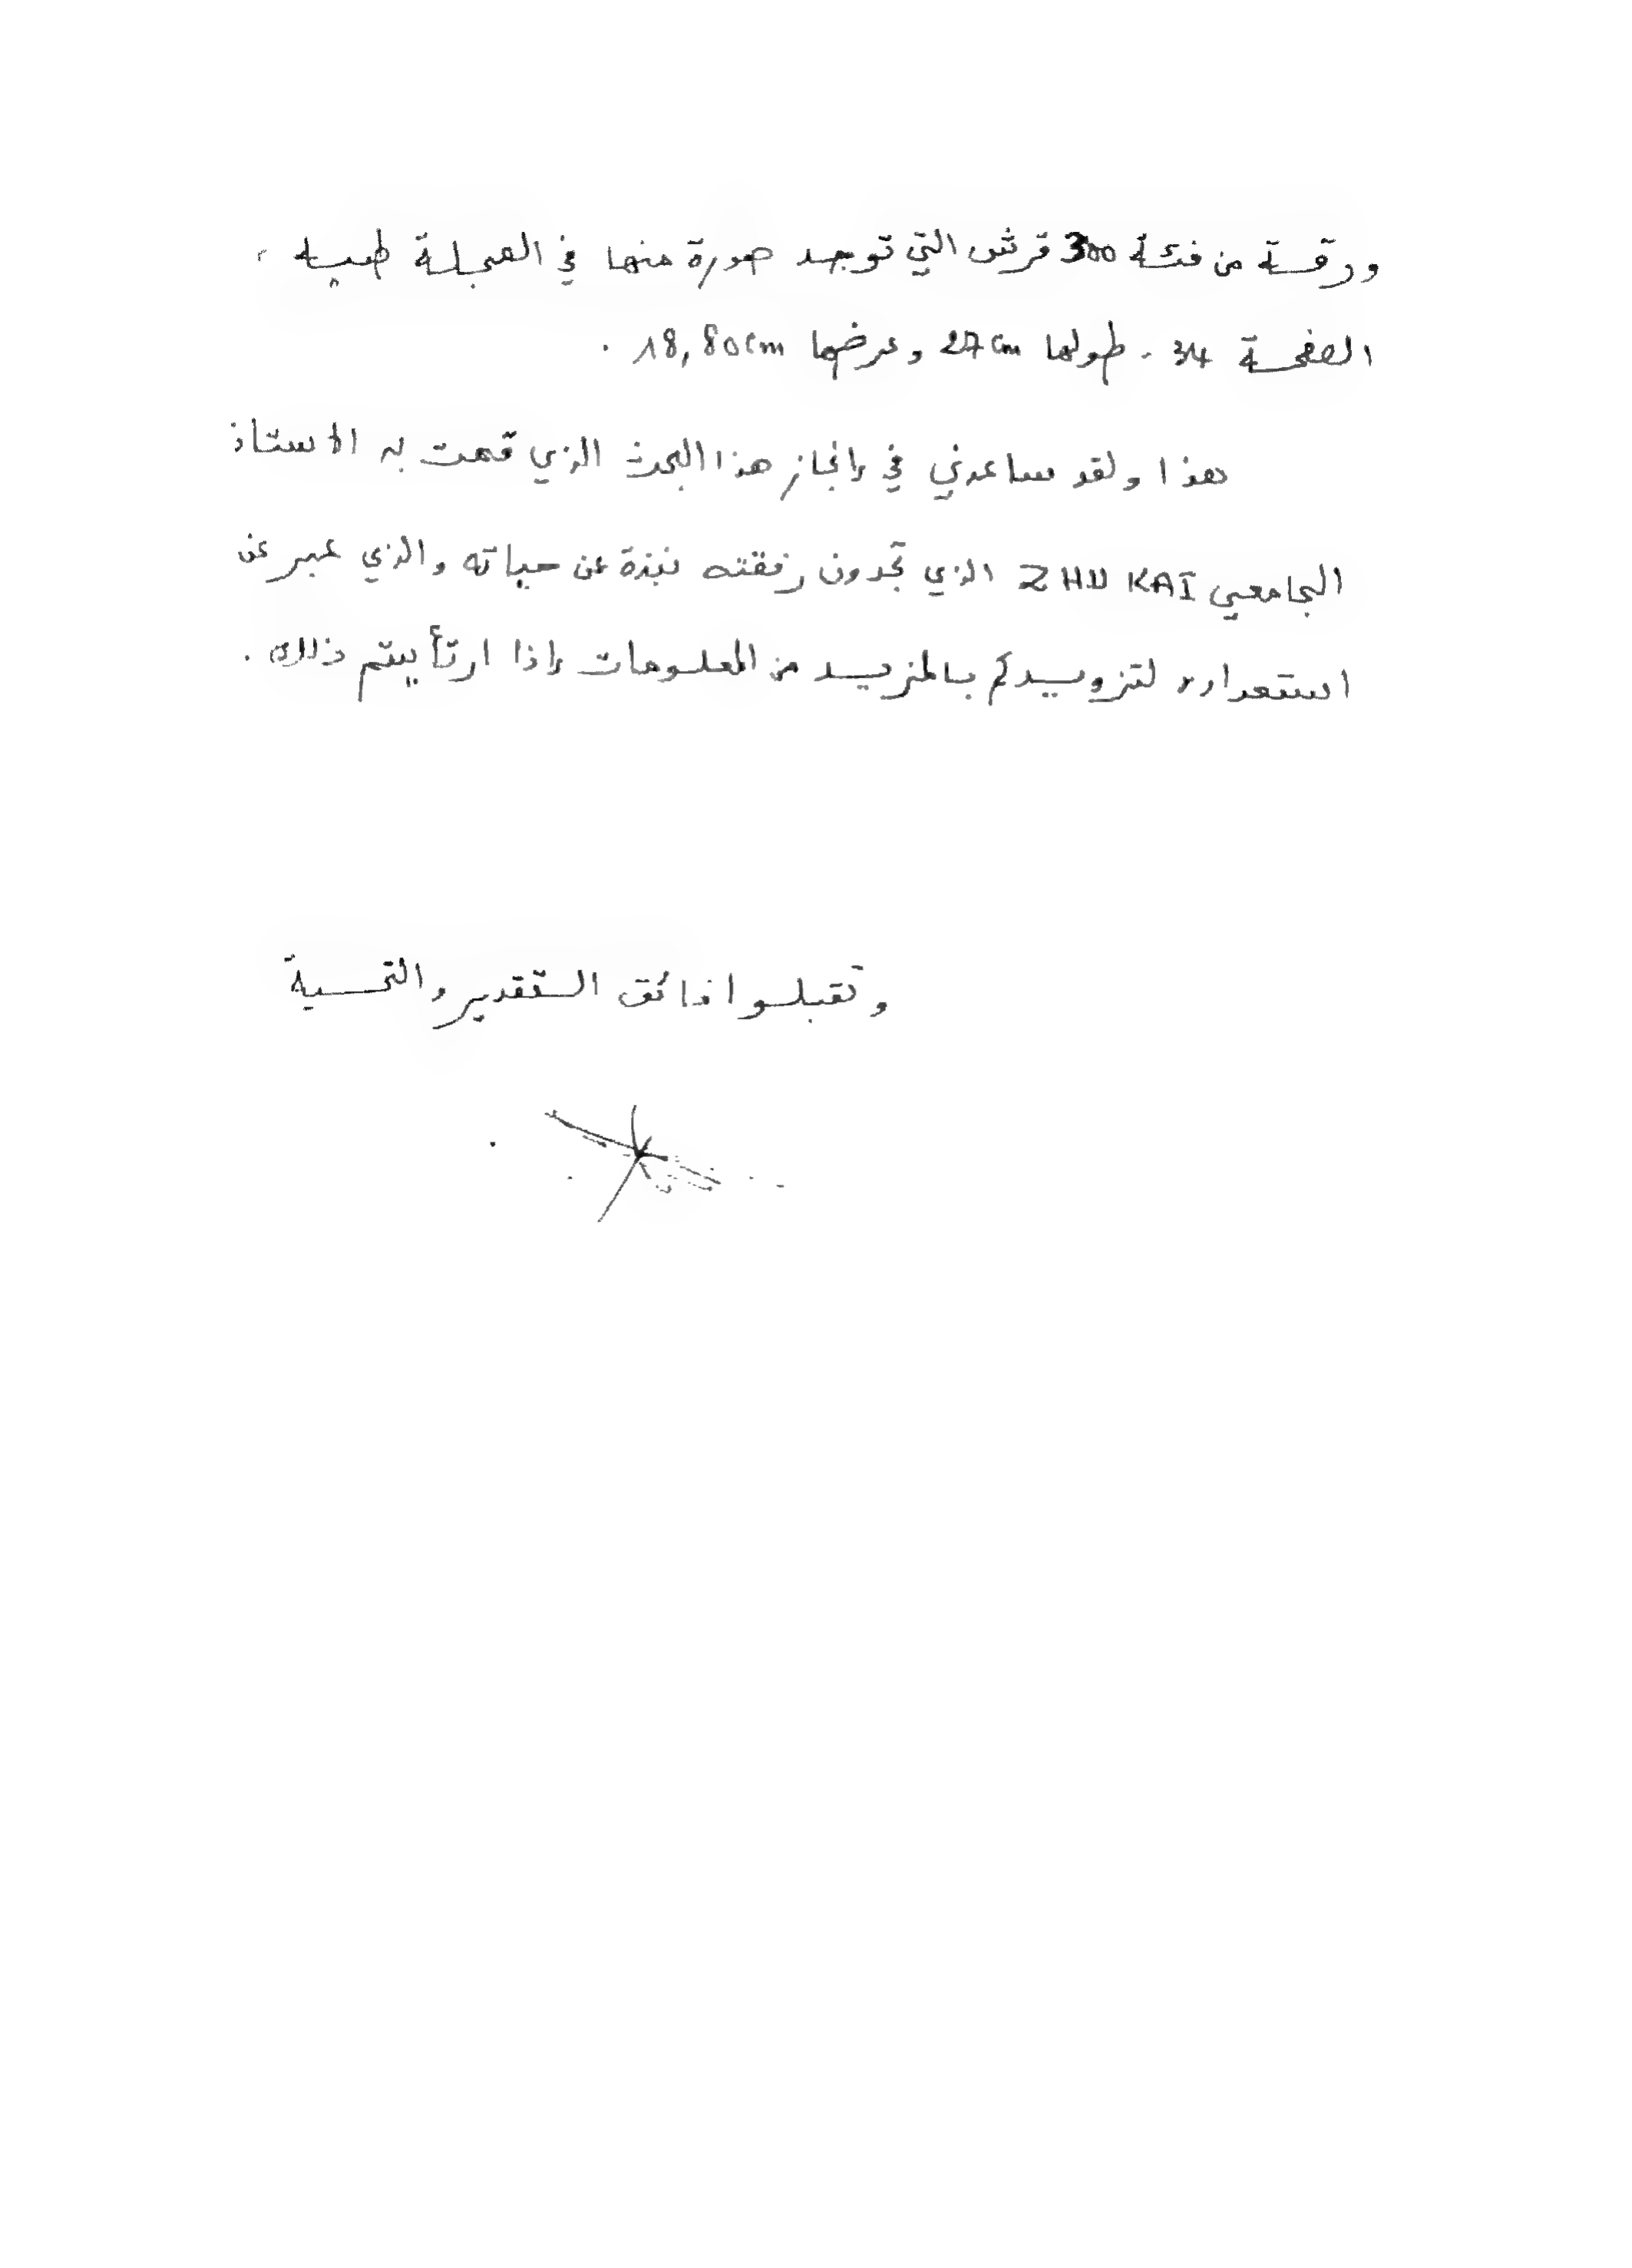 ورقة من فئة 300 قرش التي توجد صورة منها في المجلة طيه ،
الصفحة 34 . طولها 27cm وعرضها 18,80cm .
هذا ولقد ساعدني في إنجاز هذا البحث الذي قمت به الاستاذ
الجامعي ZHU KAI الذي تجدون رفقته نبذة عن حياته والذي عبر عن
استعداده لتزويدكم بالمزيد من المعلومات إذا ارتأيتم ذلك .
وتقبلوا فائق التقدير والتحية